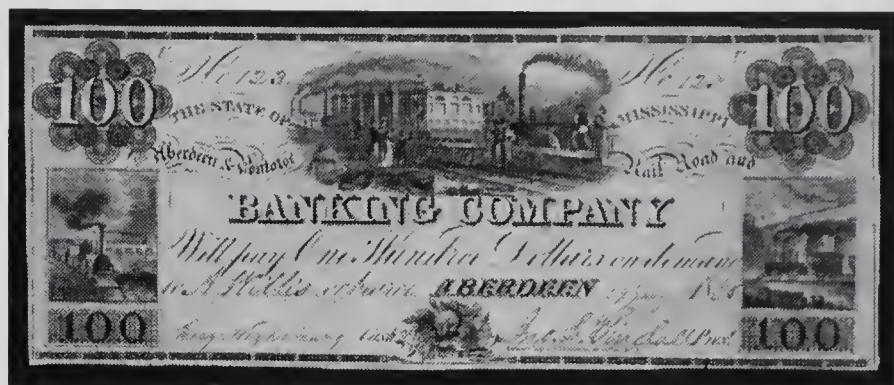 100 No 123 No 123 100
THE STATE OF MISSISSIPPI
Aberdeen & Pontotoc Rail Road and
BANKING COMPANY
Will pay One Hundred Dollars on demand
to Willis or bearer ABERDEEN 18
100 Cash Pres 100